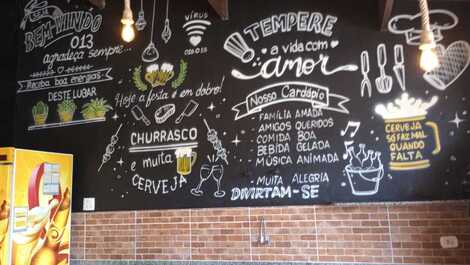 BEM-VINDO
013
agradeça sempre...
Receba boa energias
DESTE LUGAR
VÍRUS
Hoje a festa é em dobro!
CHURRASCO
e muita
CERVEJA
TEMPERE
a vida com
amor
Nosso Cardápio
FAMÍLIA AMADA
AMIGOS QUERIDOS
COMIDA BOA
BEBIDA GELADA
MÚSICA ANIMADA
MUITA ALEGRIA
DIVIRTAM-SE
CERVEJA
SÓ FAZ MAL
QUANDO
FALTA